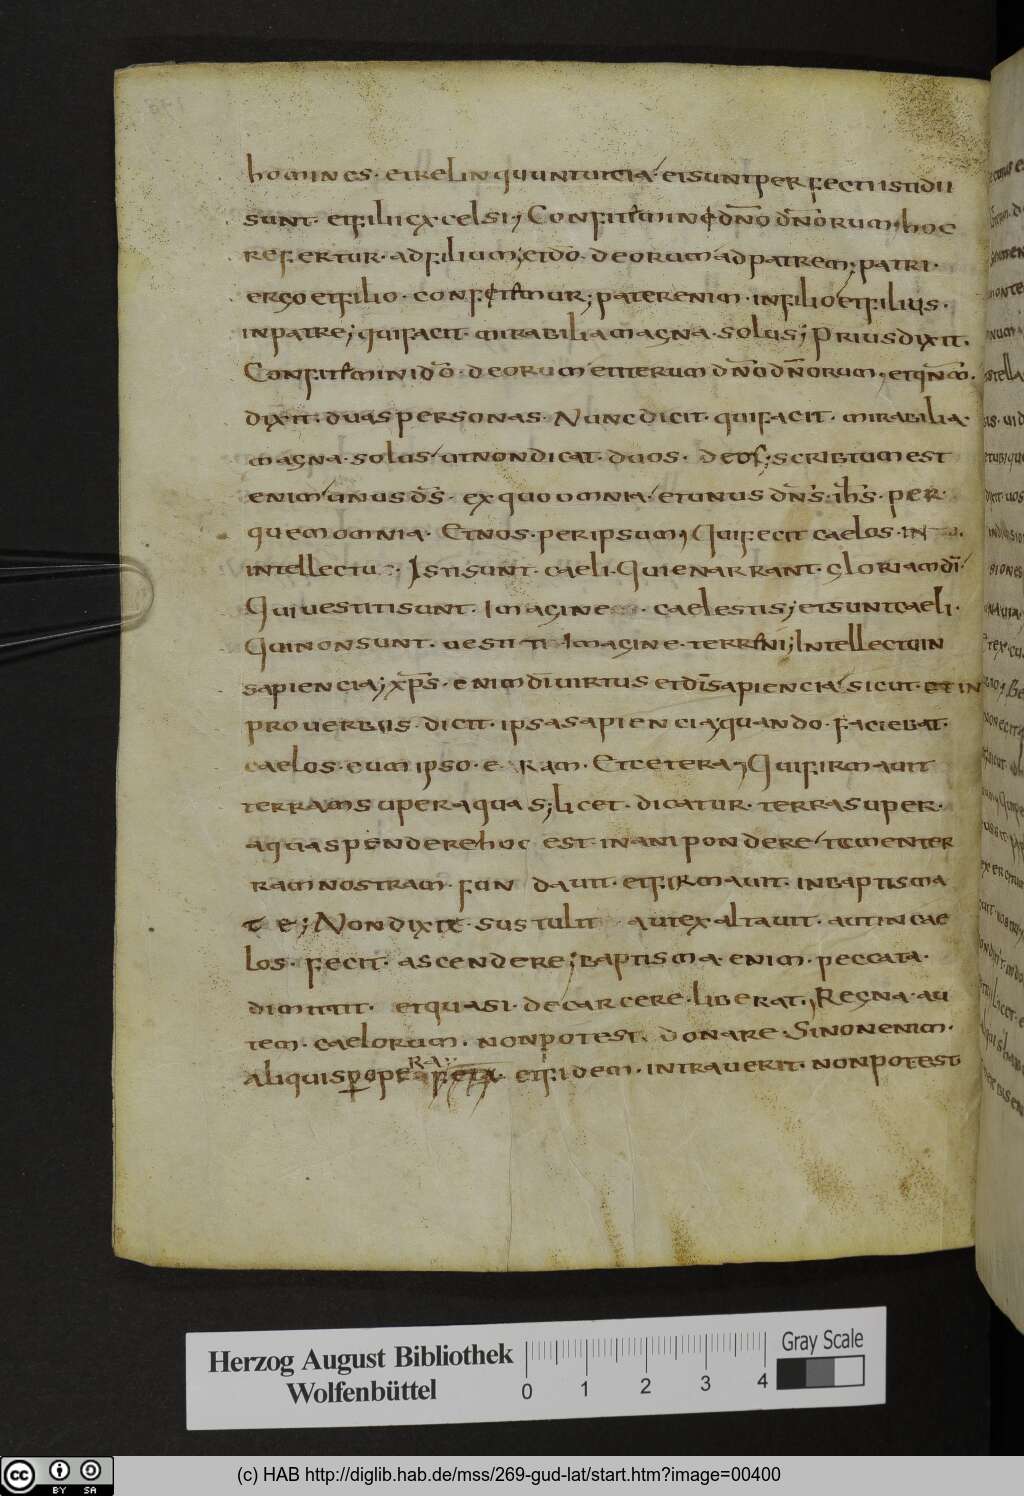 homines. et relinquunt uitia et sunt perfecti isti dii
sunt. et filii excelsi; Confitemini dño dñorum, hoc
refertur. ad filium; et dõ. deorum ad patrem; patri.
ergo et filio. confitemur; pater enim. in filio et filius.
in patre; qui facit. mirabilia magna. solus; Prius dixit.
Confitemini dõ. deorum et iterum dño dñorum, et
dixit. duas personas. Nunc dicit. qui facit. mirabilia.
magna. solus ut non dicat. duos. deos; scribtum est
enim unus d̃s. ex quo omnia et unus dñs. ih̃s. per.
quem omnia. Et nos. per ipsum; Qui fecit caelos. in
intellectu Isti sunt. caeli. Qui enarrant. gloriam dĩ.
Qui uestiti sunt. Imagine caelestis; et sunt caeli.
Qui non sunt. uestiti Imagine. terreni; Intellectu in
sapiencia; xp̃s. enim di uirtus et dĩ sapiencia sicut. et in
prouerbiis. dicit. ipsa sapiencia; quando. faciebat.
caelos. cum ipso. eram. Et cetera; Qui firmauit
terram super aquas; licet. dicatur. terra super.
aquas pendere hoc est inani pondere tamen ter
ram nostram. fun dauit. et firmauit. in baptisma
te; Non dixit sustulit aut exaltauit. aut in cae
los. fecit. ascendere; baptisma. enim. peccata.
dimittit. et quasi. de carcere. liberat, Regna. au
tem. caelorum. non potest. donare. Si non enim.
RA
aliquis p ope et fidem. intrauerit. non potest
Herzog August Bibliothek
Wolfenbüttel
0 1 2 3 4
Gray Scale
cc BY SA
(c) HAB http://diglib.hab.de/mss/269-gud-lat/start.htm?image=00400